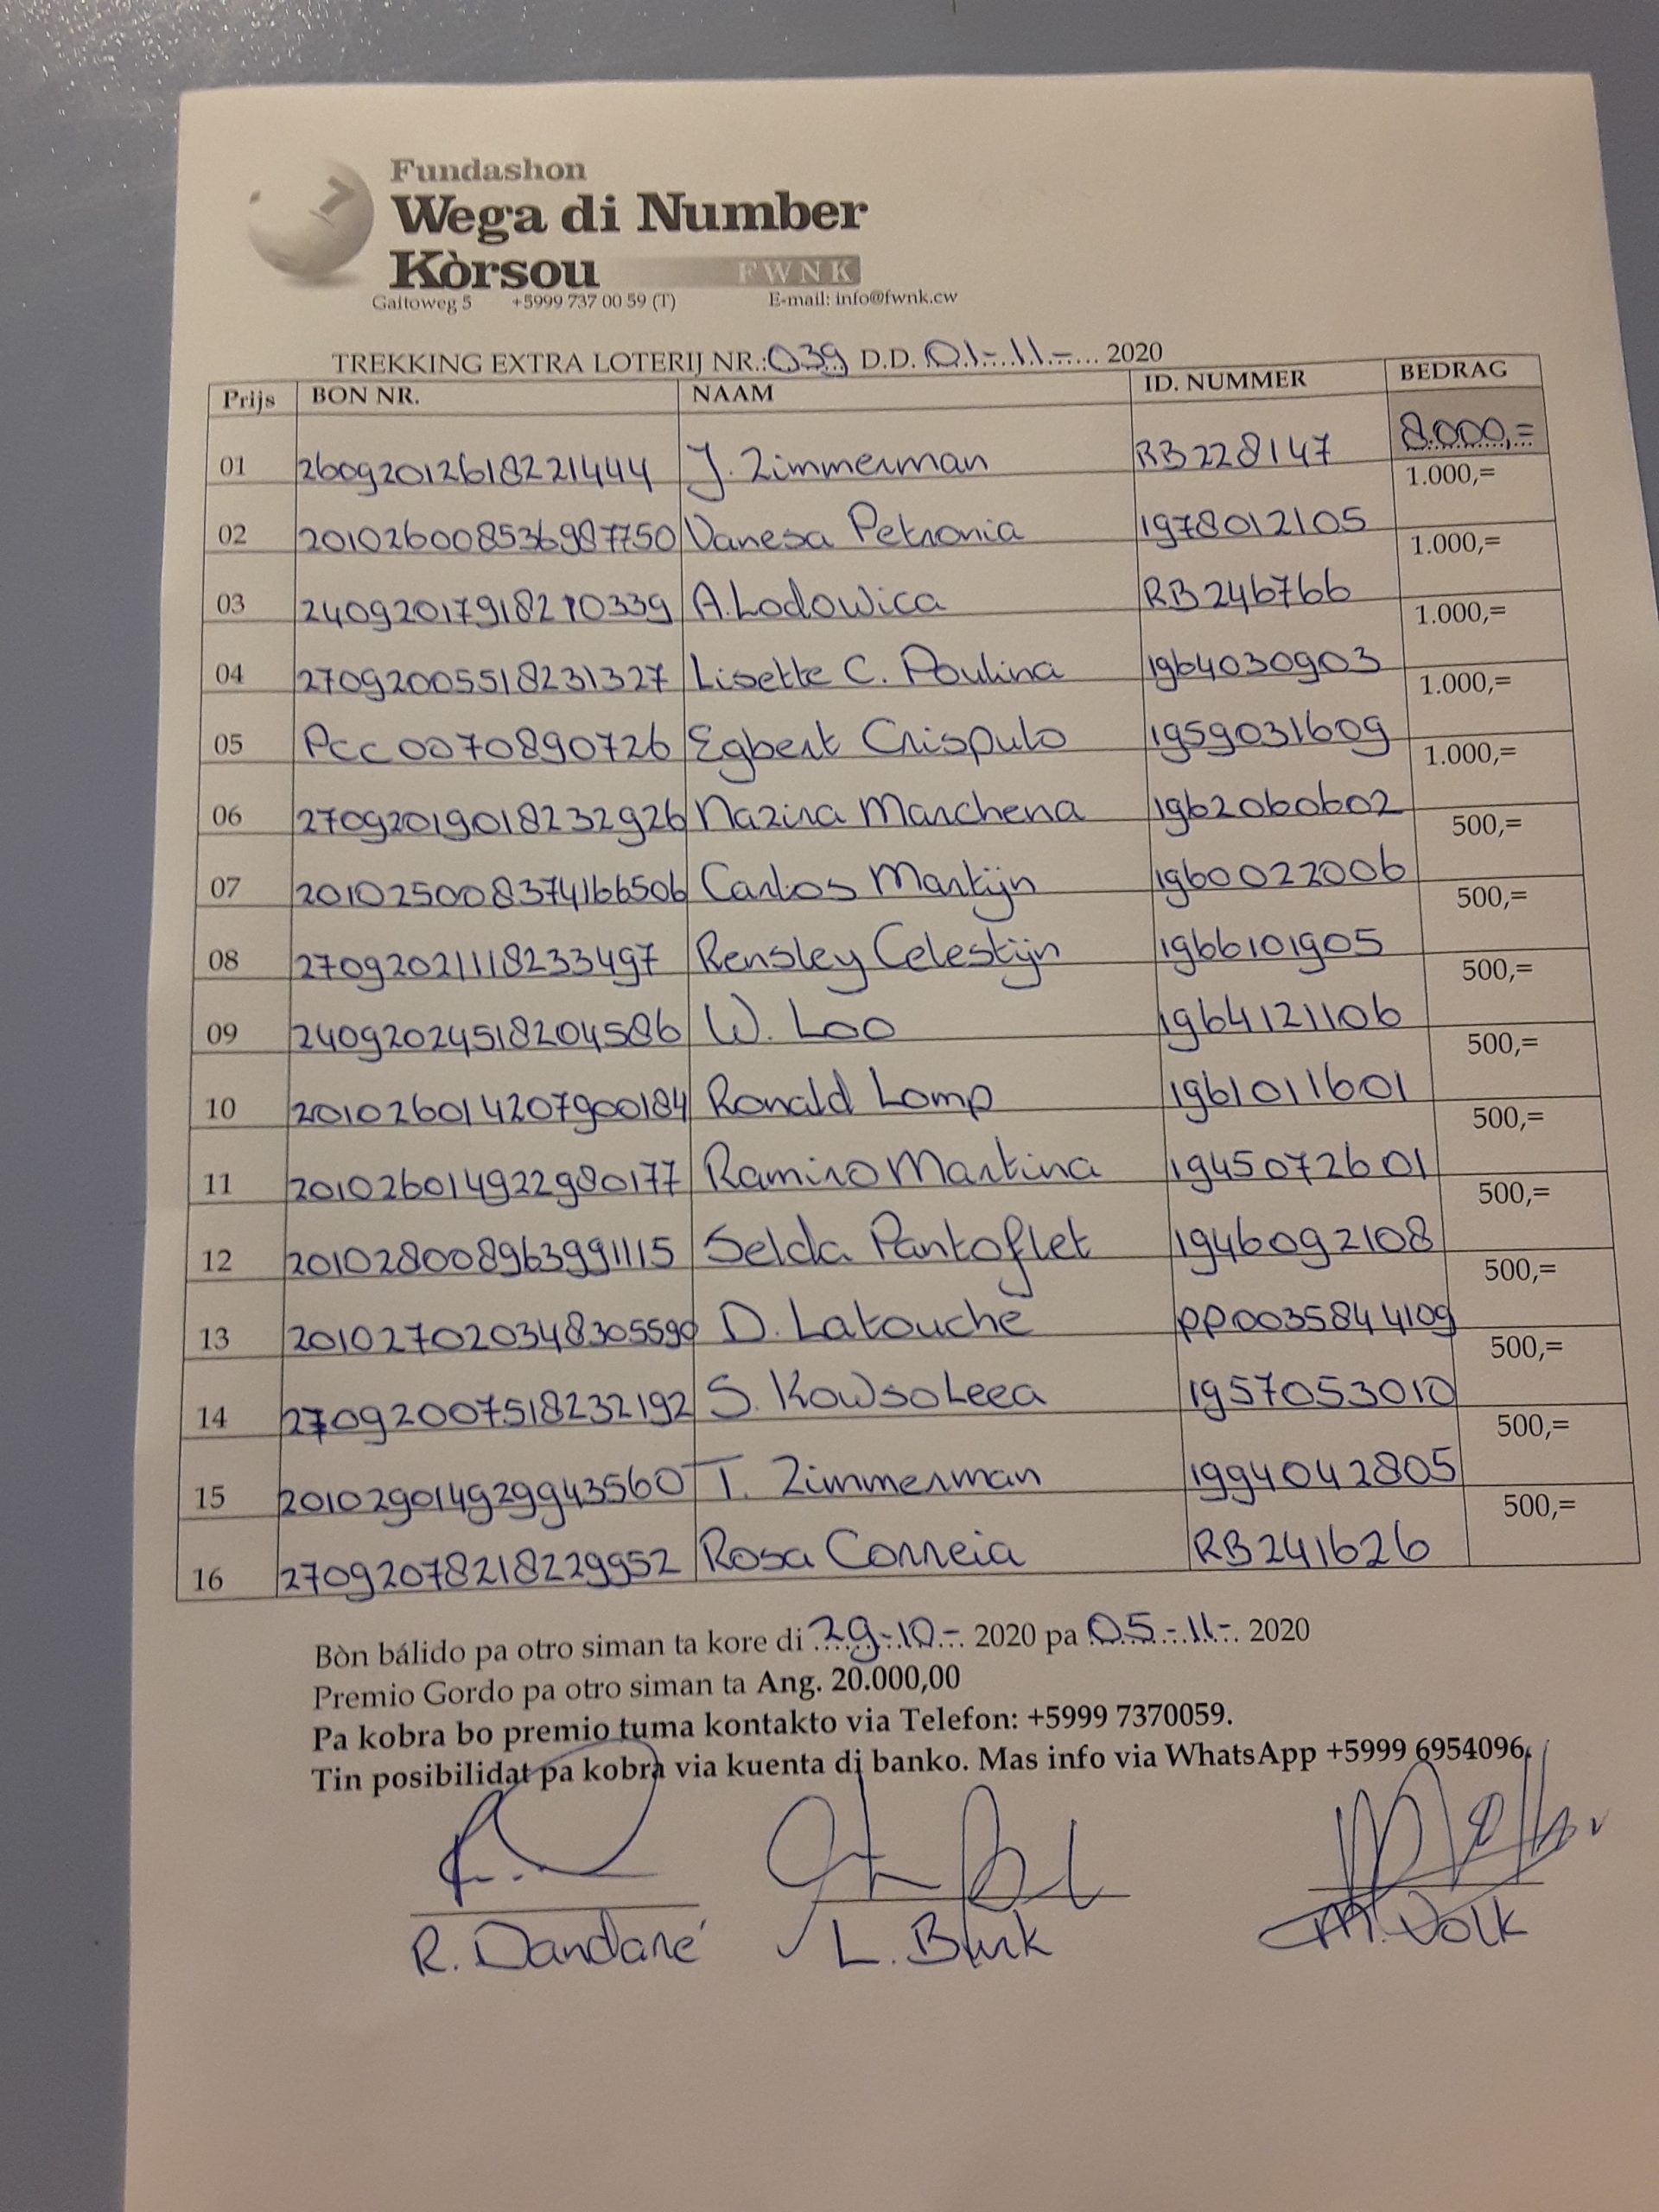 7
Fundashon
Wega di Number
Kòrsou FWNK
Gaitoweg 5 +5999 737 00 59 (T) E-mail: info@fwnk.cw
TREKKING EXTRA LOTERIJ NR.: 039 D.D. 01-11-...... 2020
Prijs BON NR. NAAM ID. NUMMER BEDRAG
01 26092012618221444 J. Zimmerman RB228147 8.000,=
02 201026008536987750 Vanesa Petronia 1978012105 1.000,=
03 240920179182 10339 A. Lodowica RB246766 1.000,=
04 27092005518231327 Lisette C. Poulina 1964030903 1.000,=
05 PCC0070890726 Egbert Crispulo 1959031609 1.000,=
06 27092019018232926 Nazira Marchena 1962060602 1.000,=
07 201025008374166506 Carlos Martijn 1960022006 500,=
08 270920211118233497 Rensley Celestijn 1966101905 500,=
09 24092024518204586 W. Loo 1964121106 500,=
10 201026014207900184 Ronald Lomp 1961011601 500,=
11 201026014922980177 Ramiro Martina 1945072601 500,=
12 201028008963991115 Selda Pantoflet 1946092108 500,=
13 201027020348305590 D. Latouche PP0035844109 500,=
14 27092007518232192 S. Kowsoleea 1957053010 500,=
15 201029014929943560 T. Zimmerman 1994042805 500,=
16 27092078218229952 Rosa Correia RB241626 500,=
Bòn bálido pa otro siman ta kore di 29-10-... 2020 pa 05-11-. 2020
Premio Gordo pa otro siman ta Ang. 20.000,00
Pa kobra bo premio tuma kontakto via Telefon: +5999 7370059.
Tin posibilidat pa kobra via kuenta di banko. Mas info via WhatsApp +5999 6954096.
R. Dandaré L. Burk M. Volk